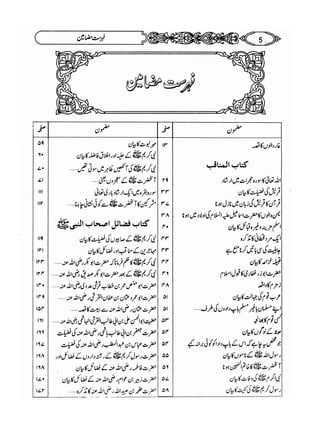 فہرست مضامین
5
فہرست مضامین
مضمون صفحہ
غار والوں کا قصہ ۱۳
کتاب المناقب
اللہ تعالیٰ کا سورۂ حجرات میں ارشاد ۲۹
قریش کی فضیلت کا بیان ۳۳
قرآن کا قریش کی زبان میں نازل ہونا ۳۷
یمن والوں کا حضرت اسماعیل علیہ السلام کی اولاد میں ہونا ۳۸
اسلم مزینہ وغیرہ قبائل کا بیان
ایک مرد قحطانی کا تذکرہ
جاہلیت کی سی باتیں کرنا منع ہے
قبیلہ خزاعہ کا بیان
حضرت ابوذر غفاری کا قبول اسلام
زمزم کا واقعہ
عرب قوم کی جہالت کا بیان ۵۱
اپنے مسلمان یا غیر مسلم باپ دادوں کی طرف ۵۱
کسی قوم کا بھانجہ
حبشہ کے لوگوں کا بیان
جو شخص یہ چاہے کہ اس کے باپ دادا کو کوئی برا نہ کہے
رسول اللہ ﷺ کے ناموں کا بیان ۵۵
آنحضرت ﷺ کا خاتم النبیین ہونا
نبی اکرم ﷺ کی وفات کا بیان ۵۷
رسول کریم ﷺ کی کنیت کا بیان ۵۸
مضمون صفحہ
مہر نبوت کا بیان ۵۹
نبی کریم ﷺ کے حلیہ اور اخلاق فاضلہ کا بیان ۶۰
نبی کریم ﷺ کی آنکھیں ظاہر میں سوتی تھیں ۷۰
آنحضرت ﷺ کے معجزوں یعنی ۷۱
سورۂ بقرہ میں ایک ارشاد باری تعالیٰ
مشرکین کا آنحضرت ﷺ سے کوئی نشانی چاہنا ۱۱۲
کتاب فضائل اصحاب النبی ﷺ
نبی کریم ﷺ کے صحابیوں کی فضیلت کا بیان ۱۱۹
مہاجرین کے مناقب اور فضائل کا بیان ۱۲۱
نبی کریم ﷺ کا حکم فرمانا کہ حضرت ابوبکر رضی اللہ عنہ ۱۲۳
نبی کریم ﷺ کے بعد حضرت ابوبکر صدیق رضی اللہ عنہ
حضرت ابو حفص عمر بن خطاب قرشی عدوی رضی اللہ عنہ
حضرت ابو عمرو عثمان بن عفان القرشی رضی اللہ عنہ ۱۴۹
حضرت عثمان رضی اللہ عنہ سے بیعت کا قصہ ۱۵۳
حضرت ابوالحسن علی بن ابی طالب القرشی الہاشمی رضی اللہ عنہ ۱۶۱
حضرت جعفر بن ابی طالب ہاشمی رضی اللہ عنہ کی فضیلت
حضرت عباس بن عبدالمطلب رضی اللہ عنہ کی فضیلت ۱۶۷
حضرت رسول کریم ﷺ کے رشتہ داروں کے فضائل اور
حضرت فاطمہ رضی اللہ عنہا کے فضائل کا بیان
حضرت زبیر بن عوام رضی اللہ عنہ کے فضائل کا بیان ۱۷۰
حضرت طلحہ بن عبیداللہ رضی اللہ عنہ کا تذکرہ ۱۷۲